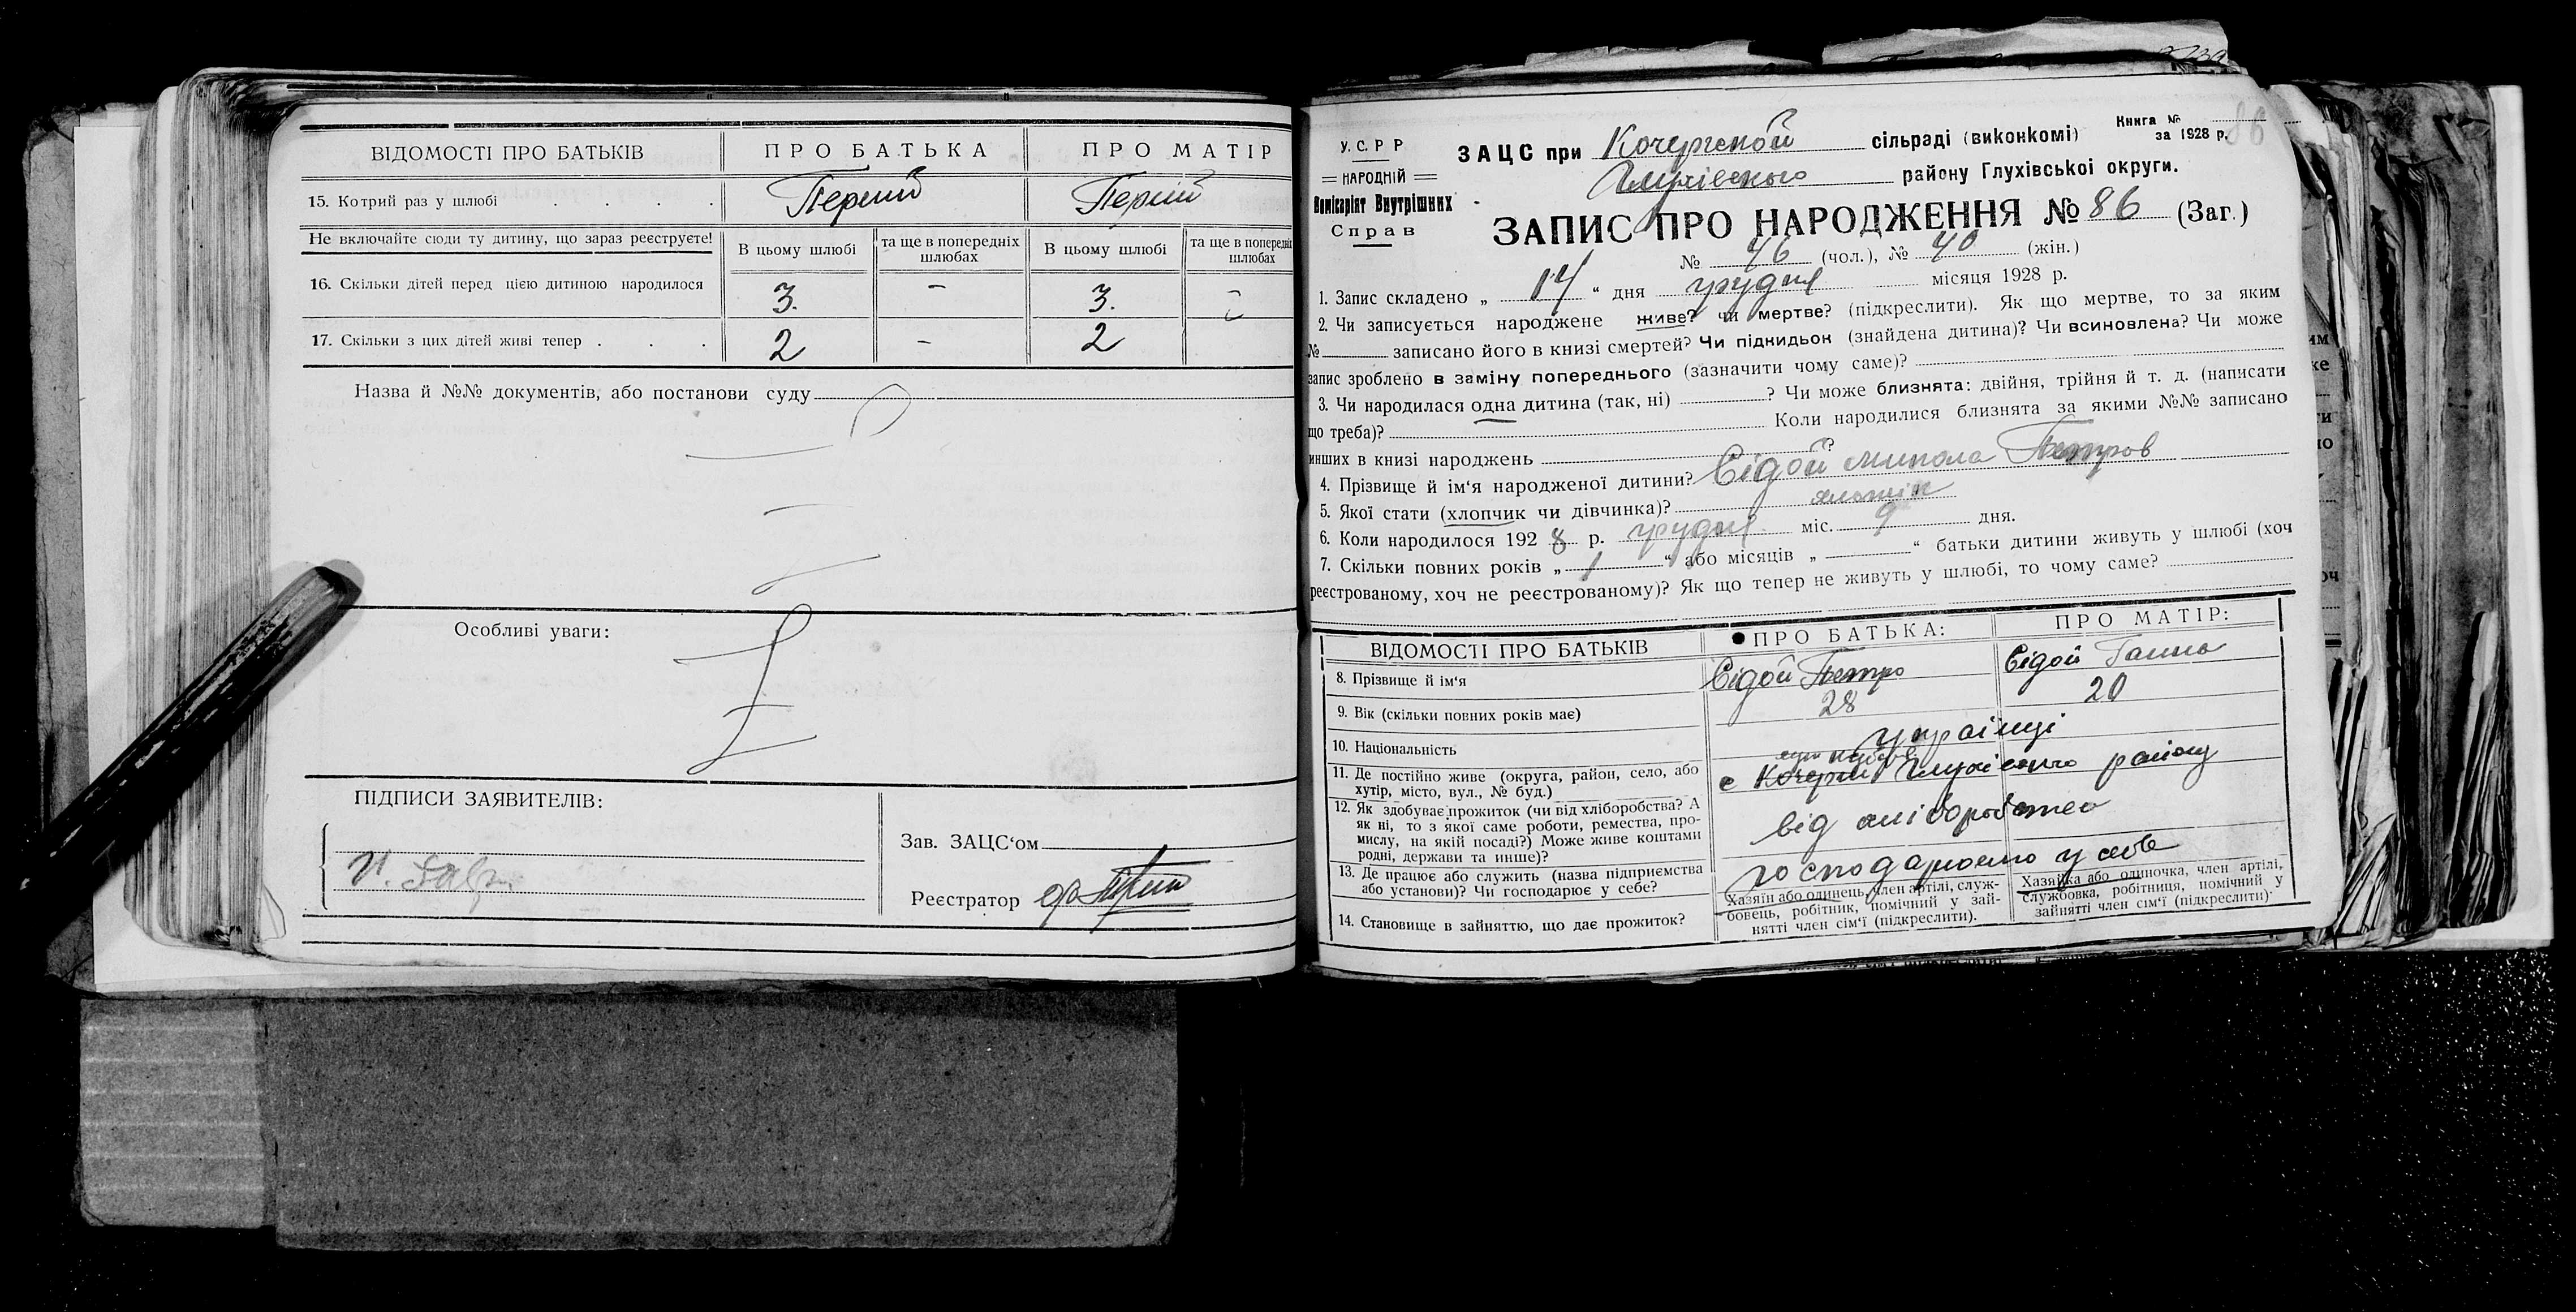 ВІДОМОСТІ ПРО БАТЬКІВ ПРО БАТЬКА ПРО МАТІР
15. Котрий раз у шлюбі . . . . Перший Перший
Не включайте сюди ту дитину, що зараз реєструєте! В цьому шлюбі та ще в попередніх шлюбах В цьому шлюбі та ще в попередніх шлюбах
16. Скільки дітей перед цією дитиною народилося 3. – 3. –
17. Скільки з цих дітей живі тепер . . . 2 – 2
Назва й №№ документів, або постанови суду
Особливі уваги:
ПІДПИСИ ЗАЯВИТЕЛІВ:
Зав. ЗАЦС‘ом
Реєстратор
У.С.Р Р
НАРОДНІЙ
Комісаріят Внутрішних
Справ
Книга №
за 1928 р. 86
ЗАЦС при Кочергской сільраді (виконкомі)
Глухівского району Глухівської округи.
ЗАПИС ПРО НАРОДЖЕННЯ № 86 (Заг.)
№ 46 (чол.), № 40 (жін.)
1. Запис складено „ 14 “ дня грудня місяця 1928 р.
2. Чи записується народжене живе? чи мертве? (підкреслити). Як що мертве, то за яким
№ записано його в книзі смертей? Чи підкидьок (знайдена дитина)? Чи всиновлена? Чи може
запис зроблено в заміну попереднього (зазначити чому саме)?
3. Чи народилася одна дитина (так, ні) ? Чи може близнята: двійня, трійня й т. д. (написати
що треба)? Коли народилися близнята за якими №№ записано
инших в книзі народжень ?
4. Прізвище й ім‘я народженої дитини? Сідой Микола Петров
5. Якої стати (хлопчик чи дівчинка)? хлопчік
6. Коли народилося 1928 р. грудня міс. 9 дня.
7. Скільки повних років „ 1 “ або місяців „ “ батьки дитини живуть у шлюбі (хоч
реєстрованому, хоч не реєстрованому)? Як що тепер не живуть у шлюбі, то чому саме?
ВІДОМОСТІ ПРО БАТЬКІВ ПРО БАТЬКА: ПРО МАТІР:
8. Прізвище й ім‘я Сідой Петро Сідой Ганна
9. Вік (скільки повних років має) 28 20
10. Національність українці
11. Де постійно живе (округа, район, село, або
хутір, місто, вул., № буд.) с Кочерги Глухівського району
12. Як здобуває прожиток (чи від хліборобства? А
як ні, то з якої саме роботи, ремества, про-
мислу, на якій посаді?) Може живе коштами
родні, держави та инше)? від хліборобства
13. Де працює або служить (назва підприємства
або установи)? Чи господарює у себе? господарюємо у себе
14. Становище в зайняттю, що дає прожиток?
Хазяїн або одинець, член артілі, служ-
бовець, робітник, помічний у зай-
нятті член сім‘ї (підкреслити).
Хазяйка або одиночка, член артілі,
службовка, робітниця, помічний у
зайнятті член сім‘ї (підкреслити).